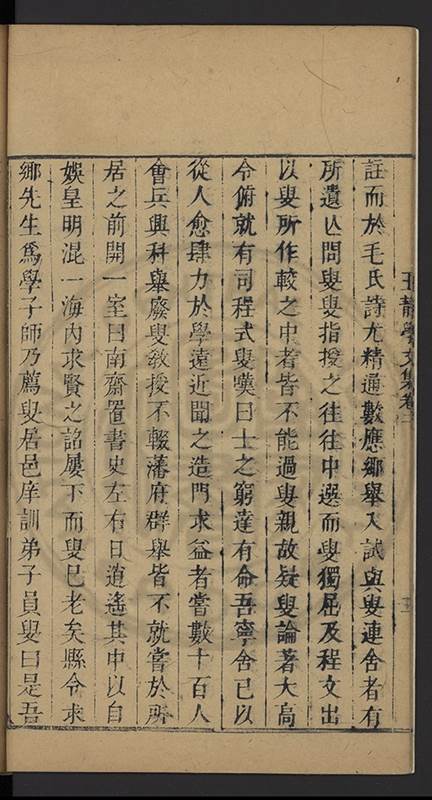 註而於毛氏詩尤精通數應鄉舉入試與叟連舍者有
所遺亾問叟叟指授之往往中選而叟獨屈及程文出
以叟所作較之中者皆不能過叟親故疑叟論著大高
令俯就有司程式叟嘆曰士之窮達有命吾寧舍已以
從人愈肆力於學遠近聞之造門求益者嘗數十百人
會兵興科舉廢叟教授不輟藩府群舉皆不就嘗於所
居之前開一室曰南齋置書史左右日逍遙其中以自
娛皇明混一海内求賢之詔屢下而叟巳老矣縣令求
鄉先生爲學子師乃薦叟居邑庠訓弟子員叟曰是吾